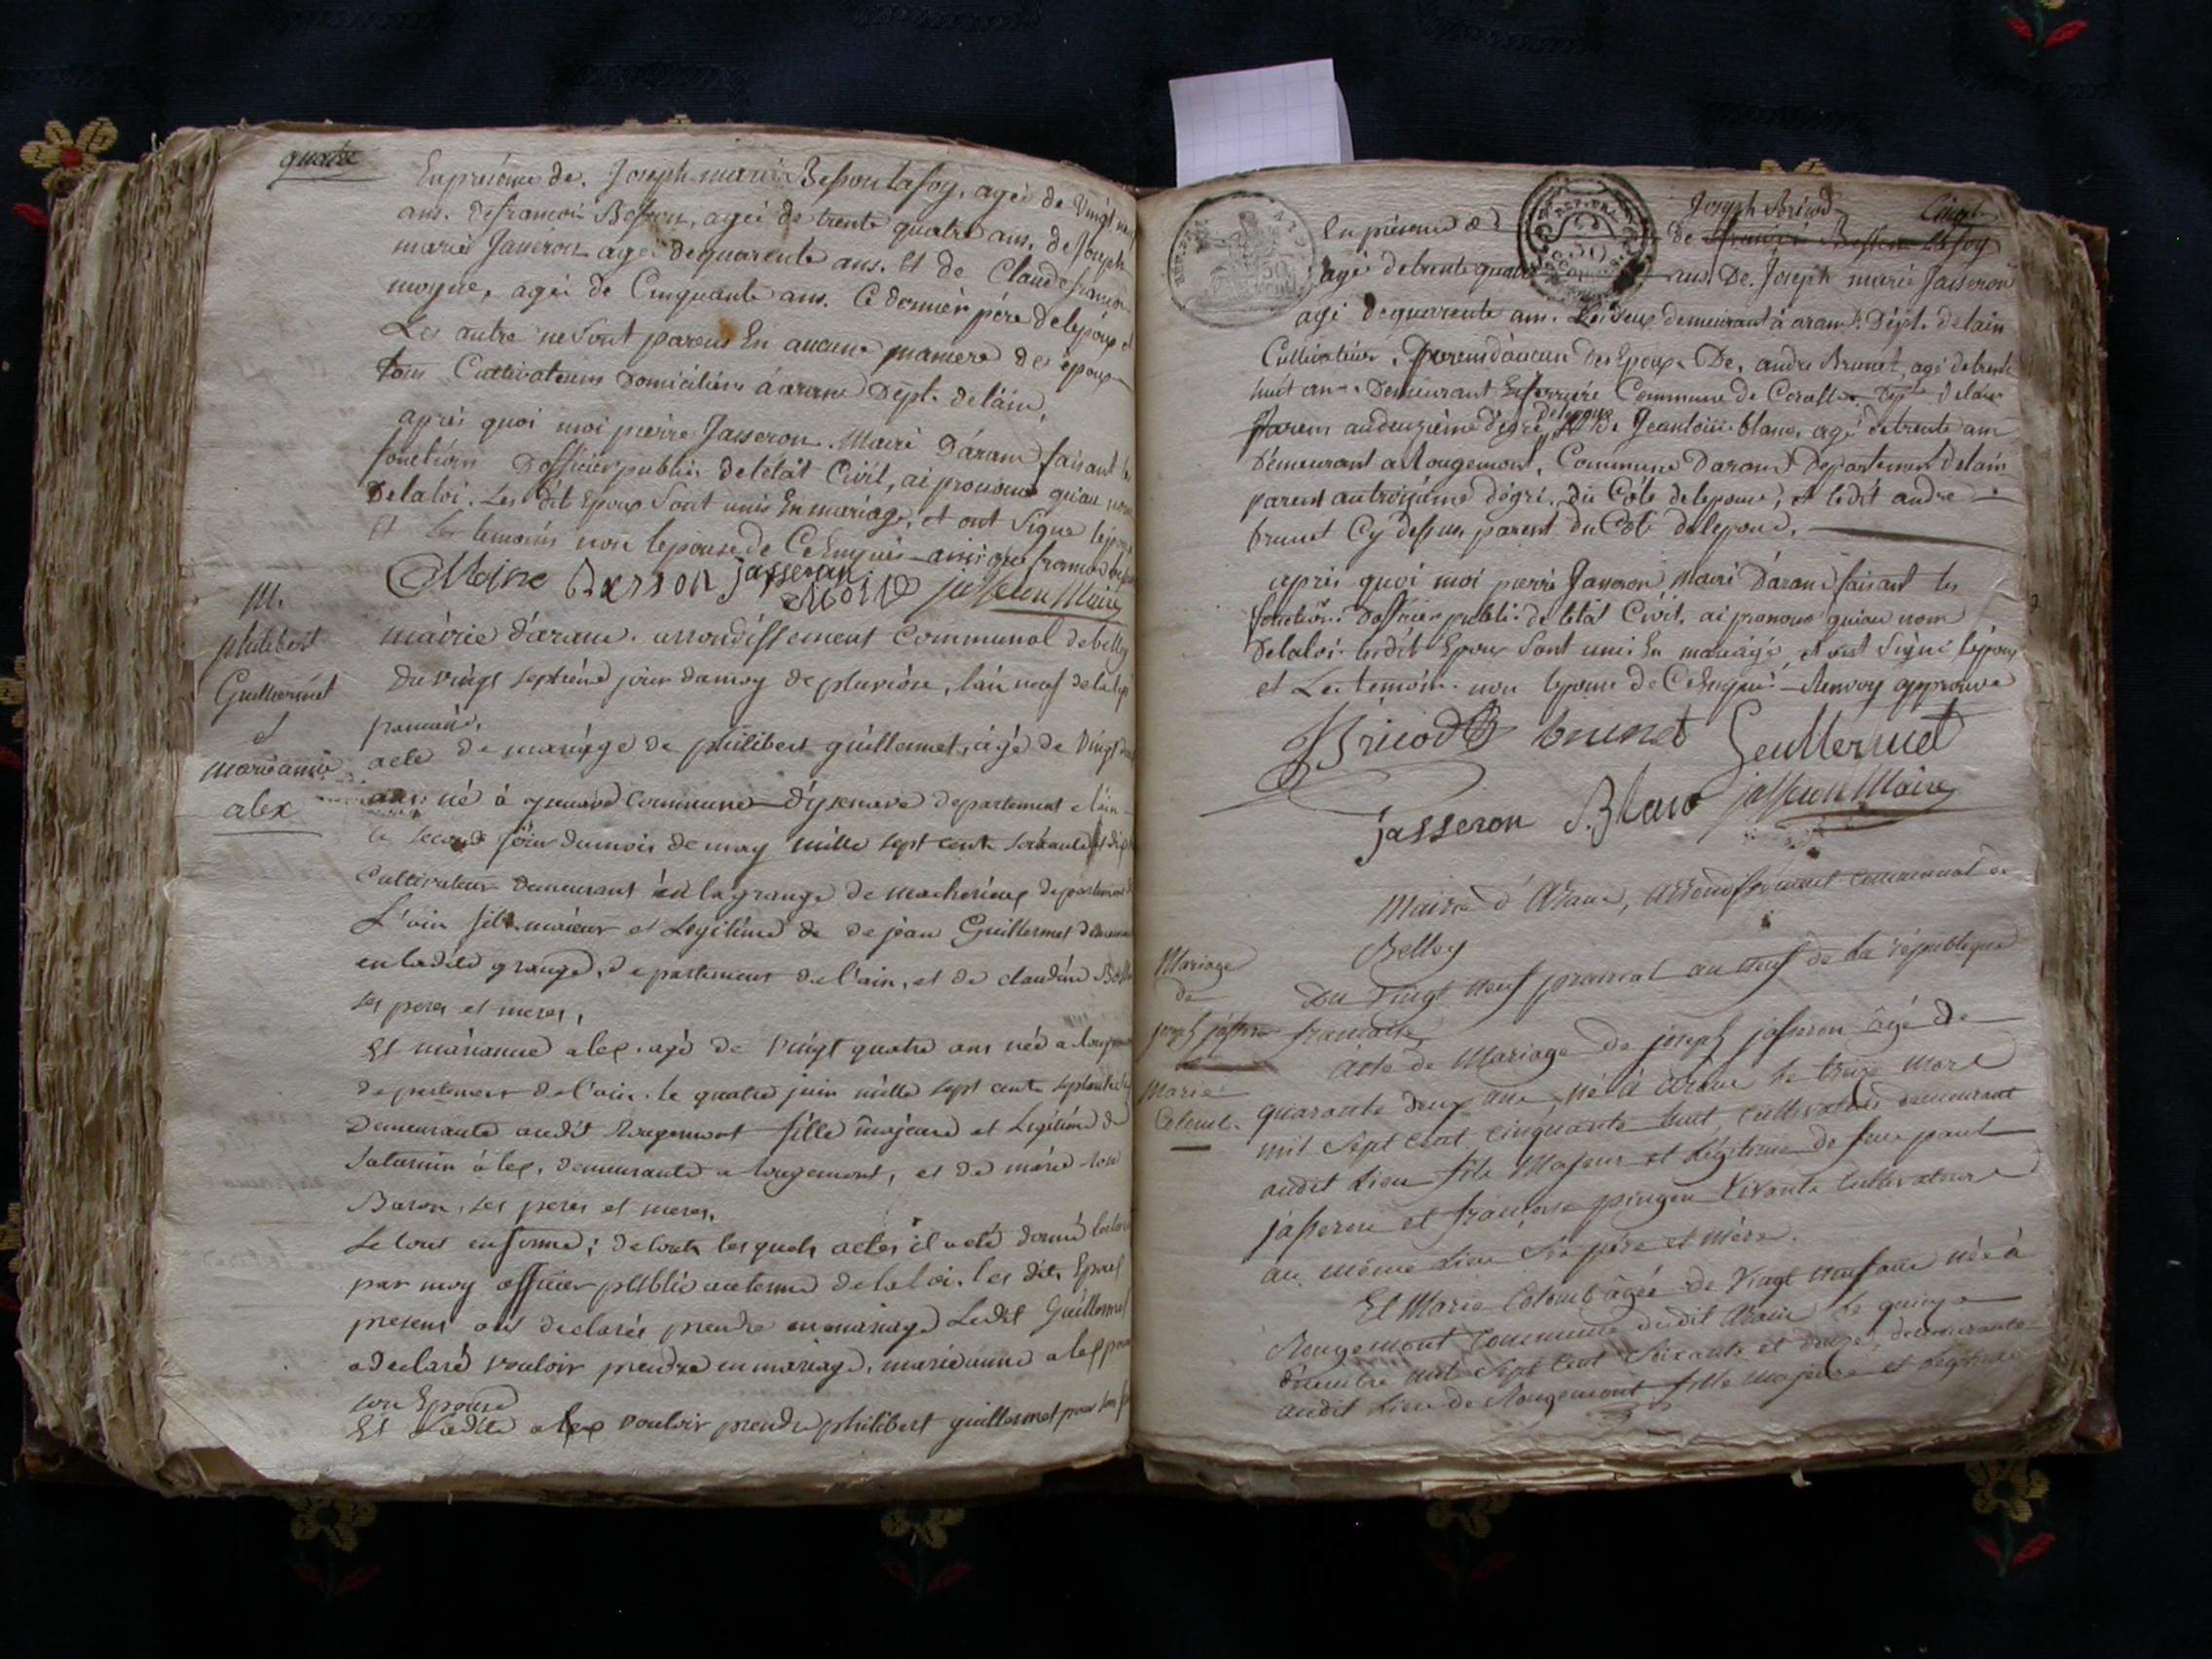 quatre
En présence de. Joseph marie Besson lafoy, agé de vingt neuf
ans. de françois Besson, agé de trente quatre ans, de Joseph
marie Jasseron agé de quarente ans. Et de Claude françois
moyne, agé de Cinquante ans. Ce dernier père de lépoux et
Les autre ne sont parens En aucune maniere des époux
tous Cultivateurs Domiciliers á arane Dépt. de láin,
aprés quoi moi pierre Jasseron. Maire D'arane faisant les
fonctions D'officier public de létat Civil, ai prononcé qu'au nom
De la loi. Les dit Epoux Sont unis En mariage, et ont Signé lépoux
Et les temoins non lepouse de Ce Enquis ainsi que françois
Moine Besson jasseron
Moine jasseron Maire
M.
philibert
Guillermet
et
marie anne
alex
máirie d'arane. arrondissement Communal de belley
Du vingt septieme jour du moy de pluviose, l'an neuf de la rep
francaise.
acte de mariage de philibert guillermet, agé de vingt
ans né à commune d'yzenave departement de l'ain
le second jour du mois de may mille sept cent soixante et dix
Cultivateur demeurant en la grange de macherieux departement de
L'ain fils majeur et Legitime de de jean Guillermet demeurant
en ladite grange, departement de l'ain, et de claudine
ses peres et meres,
Et marianne alex. agé de vingt quatre ans née a rougemont
departement de l'ain. le quatre juin mille sept cent septante
Demeurante audit Rougemont fille majeure et Legitime de
Saturnin alex, demeurante a rougemont, et de marie
Baron, ses peres et meres,
Le tout en forme; de touts lesquels actes il a eté donné lecture
par moy officier public au terme de la loi. les dits Epoux
presens ont declarés prendre en mariage Ledit Guillermet
a declaré vouloir prendre en mariage, marie anne alex pour
son Epouse
Et Ladite alex vouloir prendre philibert guillermet pour son
Cinq
En présence de
Joseph Bricod
de françois Besson lafoy
agé de trente quatre ans. De. Joseph marie Jasseron
agé de quarente ans. Les deux demeurant á arane. Dépt. de lain
Cultivateur. parens d'aucun des Epoux. De, andre Brunet, agé de trente
huit ans. Demeurant Commune de Corcelle. Dépt. de lain
parens au deuzième dégré de lepoux, de Jean louis blanc, agé de trente ans
Demeurant a Rougemont, Commune D'arane Departement de lain
parent au troisieme dégré. du Côté de lepouse, et ledit andre
brunet Cy dessus, parent du Coté de lepoux.
aprés quoi moi pierre Jasseron Maire D'arane faisant les
fonctions D'officier public de létat Civil, ai prononcé qu'au nom
De la loi. les dit Epoux Sont unis En mariage, et ont Signé lépoux
et Les temoins. non lepouse de Ce Enquis. Renvoy approuvé
JBricod brunet Guillermet
jasseron J. Blanc jasseron Maire
Mairie d'Arane, arrondissement communal de
Belley
Mariage
de
joseph jasseron
et
Marie
Colomb.
Du vingt neuf prairial an neuf de la république
francaise,
Acte de Mariage de joseph jasseron âgé de
quarante deux ans, né à arane le treize Mars
mil Sept Cent cinquante huit, cultivateur demeurant
audit Lieu fils Majeur et Légitime de feu paul
jasseron et françoise pingeon Vivante Cultivateurs
au même Lieu Ses père et mère.
Et Marie Colomb âgée de Vingt neuf ans née à
Rougemont Commune dudit Arane le quinze
mil Sept Cent Soixante et douze, demeurante
audit Lieu de Rougemont fille majeure et Légitime